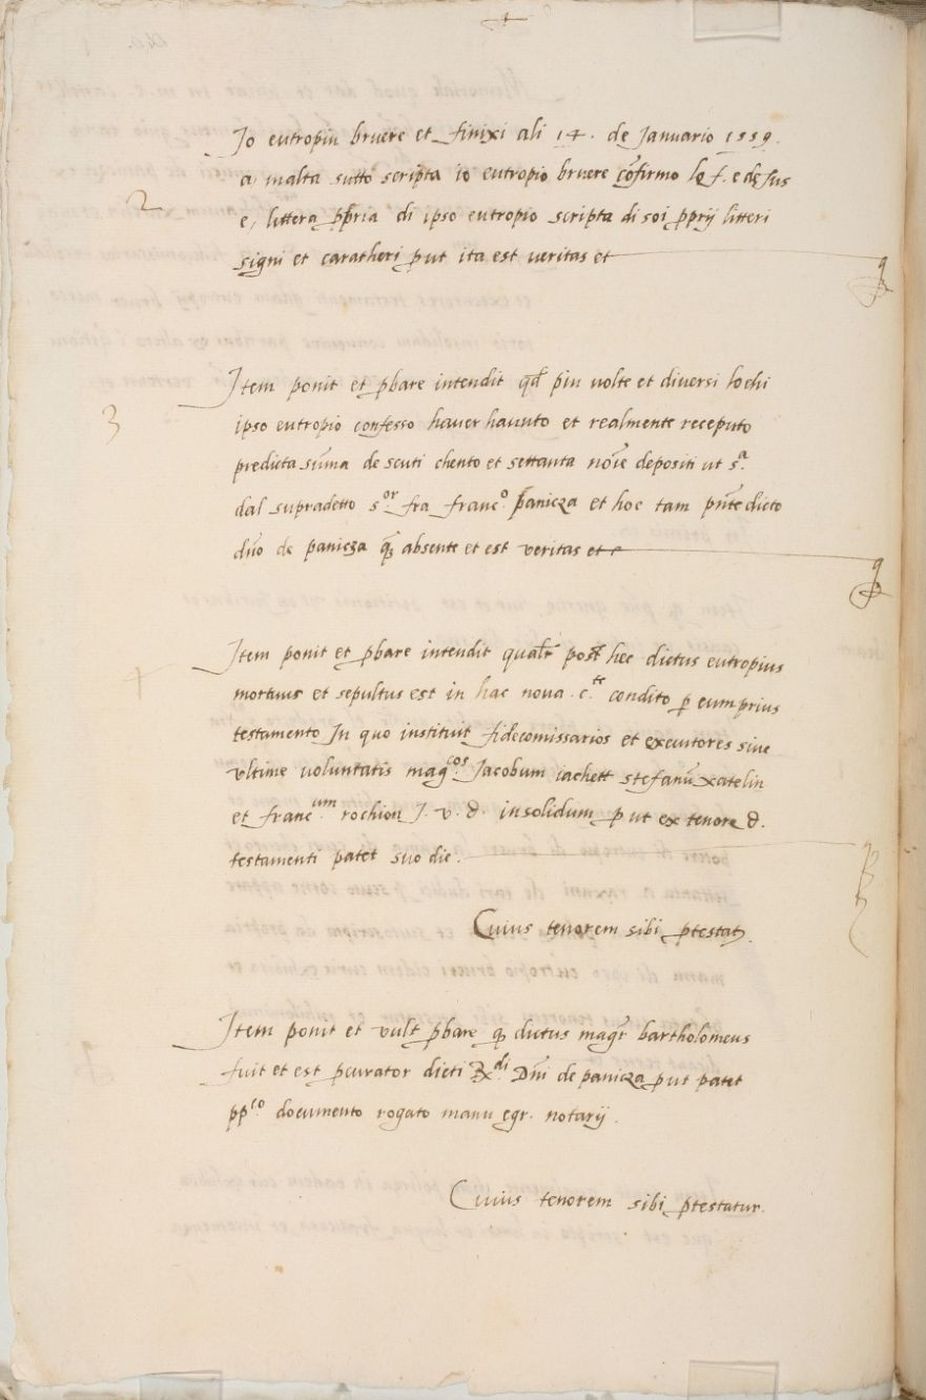 +
Jo eutropiu bruere et finixi ali 14. de Januario 1559.
a malta sutto scripta io eutropio bruere cõfirmo le f. e de sus
2
e, littera ppria di ipso eutropio scripta di soi pprij litteri
signi et caratheri put ita est veritas et
Jtem ponit et pbare intendit qd piu uolte et diuersi lochi
3
ipso eutropio confesso hauer hauuto et realmente receputo
predicta sũma de scuti chento et settanta noĩe depositi ut s.ª
dal supradetto s.or fra franc.º paniza et hoc tam pñte dicto
dño de paniza q absente et est veritas et
Jtem ponit et pbare intendit qualr post hec dictus eutropius
4
mortuus et sepultus est in hac noua c.te condito p eum prius
testamento Jn quo instituit fidecomissarios et executores siue
vltime uoluntatis mag.cos Jacobum iachett stefanũ xatelin
et franc.um rochion J. v. d. insolidum put ex tenore d.
testamenti patet suo die.
Cuius tenorem sibi ptestat.
Jtem ponit et vult pbare q dictus magr bartholomeus
fuit et est pcurator dicti Rdi Dñi de paniza put patet
pp.co documento rogato manu egr. notarij.
Cuius tenorem sibi ptestatur.